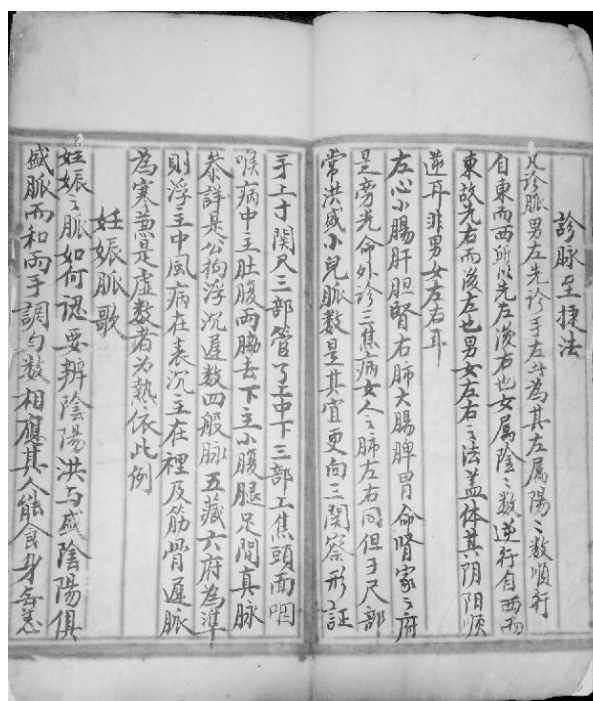 診脉至捷法
凡診脉男左先診手左為其左属陽〻数順行
自東而西所以先左後右也女属陰〻数逆行自西而
東故先右而後左也男女左右之法盖体其阴阳顺
逆耳非男女左右耳
左心小腸肝胆腎右肺大腸脾胃命腎家之府
是旁光命外診三焦病女人之肺左右同但于尺部
常洪盛小兒脉数是其宜更向三関察形証
手上寸関尺三部管了上中下三部上焦頭面咽
喉病中主肚腹両脇去下主小腹腿足間真脉
叅詳是公狗浮沉遲数四般脉五藏六府為準
則浮主中風病在表沉主在裡及筋骨遲脉
為寒䓤是虚数者为熱依此例
妊娠脉歌
妊娠之脉如何認要辨陰陽洪与盛陰陽俱
盛脉而和両手調匀数相應其人能食身無恙